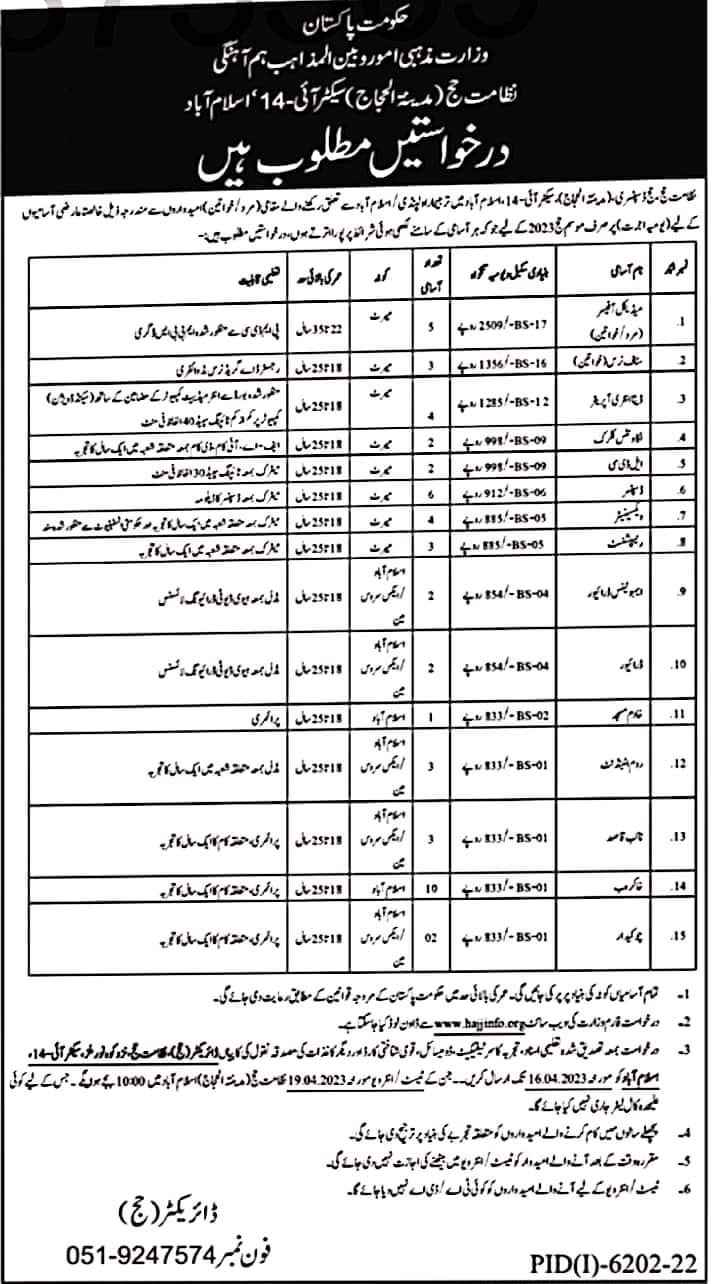 حکومت پاکستان
وزارت مذہبی امور و بین المذاہب ہم آہنگی
نظامت حج (مدینۃ الحجاج) سیکٹر آئی-14، اسلام آباد
درخواستیں مطلوب ہیں
نظامت حج، حج ڈسپنسری، (مدینۃ الحجاج)، سیکٹر آئی-14، اسلام آباد میں ترجیحاً راولپنڈی/اسلام آباد سے تعلق رکھنے والے مقامی (مرد/خواتین) امیدواروں سے مندرجہ ذیل خالصتاً عارضی آسامیوں
کے لیے (یومیہ اجرت) پر صرف موسم حج 2023 کے لیے جو کہ ہر آسامی کے سامنے لکھی ہوئی شرائط پر پورا اترتے ہوں، درخواستیں مطلوب ہیں:-
نمبر شمار | نام آسامی | بنیادی سکیل و یومیہ تنخواہ | تعداد آسامی | کوٹہ | عمر کی بالائی حد | تعلیمی قابلیت
1. | میڈیکل آفیسر (مرد/خواتین) | BS-17-/2509 روپے | 5 | میرٹ | 22 تا 35 سال | پی ایم ڈی سی سے منظور شدہ ایم بی بی ایس ڈگری
2. | سٹاف نرس (خواتین) | BS-16-/1356 روپے | 3 | میرٹ | 18 تا 25 سال | رجسٹرڈ اے گریڈ نرس مڈوائفری
3. | ڈیٹا انٹری آپریٹر | BS-12-/1285 روپے | 4 | میرٹ | 18 تا 25 سال | منظور شدہ بورڈ سے انٹرمیڈیٹ کمپیوٹر کے مضامین کے ساتھ (سیکنڈ ڈویژن) کمپیوٹر پر کم از کم ٹائپنگ سپیڈ 40 الفاظ فی منٹ
4. | اکاؤنٹس کلرک | BS-09-/998 روپے | 2 | میرٹ | 18 تا 25 سال | ایف۔اے، آئی کام، ڈی کام بمعہ متعلقہ شعبہ میں ایک سال کا تجربہ
5. | ایل ڈی سی | BS-09-/998 روپے | 2 | میرٹ | 18 تا 25 سال | میٹرک بمعہ ٹائپنگ سپیڈ 30 الفاظ فی منٹ
6. | ڈسپنسر | BS-06-/912 روپے | 6 | میرٹ | 18 تا 25 سال | میٹرک بمعہ ڈسپنسر کا ڈپلومہ
7. | ویکسینیٹر | BS-05-/885 روپے | 4 | میرٹ | 18 تا 25 سال | میٹرک بمعہ متعلقہ شعبہ میں ایک سال کا تجربہ اور حکومتی انسٹیٹیوٹ سے منظور شدہ سند
8. | ریسپشنسٹ | BS-05-/885 روپے | 3 | میرٹ | 18 تا 25 سال | میٹرک بمعہ متعلقہ شعبہ میں ایک سال کا تجربہ
9. | ایمبولینس ڈرائیور | BS-04-/854 روپے | 2 | اسلام آباد /ایکس سروس مین | 18 تا 25 سال | مڈل بمعہ ہیوی ڈیوٹی ڈرائیونگ لائسنس
10. | ڈرائیور | BS-04-/854 روپے | 2 | اسلام آباد /ایکس سروس مین | 18 تا 25 سال | مڈل بمعہ ہیوی ڈیوٹی ڈرائیونگ لائسنس
11. | خادم مسجد | BS-02-/833 روپے | 1 | اسلام آباد | 18 تا 25 سال | پرائمری
12. | روم اٹینڈنٹ | BS-01-/833 روپے | 3 | اسلام آباد /ایکس سروس مین | 18 تا 25 سال | مڈل بمعہ متعلقہ شعبہ میں ایک سال کا تجربہ
13. | نائب قاصد | BS-01-/833 روپے | 3 | اسلام آباد /ایکس سروس مین | 18 تا 25 سال | پرائمری، متعلقہ کام کا ایک سال کا تجربہ
14. | خاکروب | BS-01-/833 روپے | 10 | اسلام آباد | 18 تا 25 سال | پرائمری، متعلقہ کام کا ایک سال کا تجربہ
15. | چوکیدار | BS-01-/833 روپے | 02 | اسلام آباد /ایکس سروس مین | 18 تا 25 سال | پرائمری، متعلقہ کام کا ایک سال کا تجربہ
1- تمام آسامیاں کوٹہ کی بنیاد پر پر کی جائیں گی۔ عمر کی بالائی حد میں حکومت پاکستان کے مروجہ قوانین کے مطابق رعایت دی جائے گی۔
2- درخواست فارم وزارت کی ویب سائٹ www.hajjinfo.org سے ڈاؤن لوڈ کیا جا سکتا ہے۔
3- درخواست بمعہ تصدیق شدہ تعلیمی اسناد، تجربہ کا سرٹیفکیٹ، ڈومیسائل، قومی شناختی کارڈ اور دیگر کاغذات کی مصدقہ نقول کی کاپیاں ڈائریکٹر (حج)، نظامت حج، نزد کوہ نور ملز، سیکٹر آئی-14،
اسلام آباد کو مورخہ 16.04.2023 تک ارسال کریں۔ جن کے ٹیسٹ/انٹرویو مورخہ 19.04.2023 نظامت حج (مدینۃ الحجاج) اسلام آباد میں 10:00 بجے ہوں گے۔ جس کے لیے کوئی
علیحدہ کال لیٹر جاری نہیں کیا جائے گا۔
4- پچھلے سالوں میں کام کرنے والے امیدواروں کو متعلقہ تجربے کی بنیاد پر ترجیح دی جائے گی۔
5- مقررہ وقت کے بعد آنے والے امیدوار کو ٹیسٹ/انٹرویو میں بیٹھنے کی اجازت نہیں دی جائے گی۔
6- ٹیسٹ/انٹرویو کے لیے آنے والے امیدواروں کو کوئی ٹی اے/ڈی اے نہیں دیا جائے گا۔
ڈائریکٹر (حج)
فون نمبر 051-9247574
PID(I)-6202-22